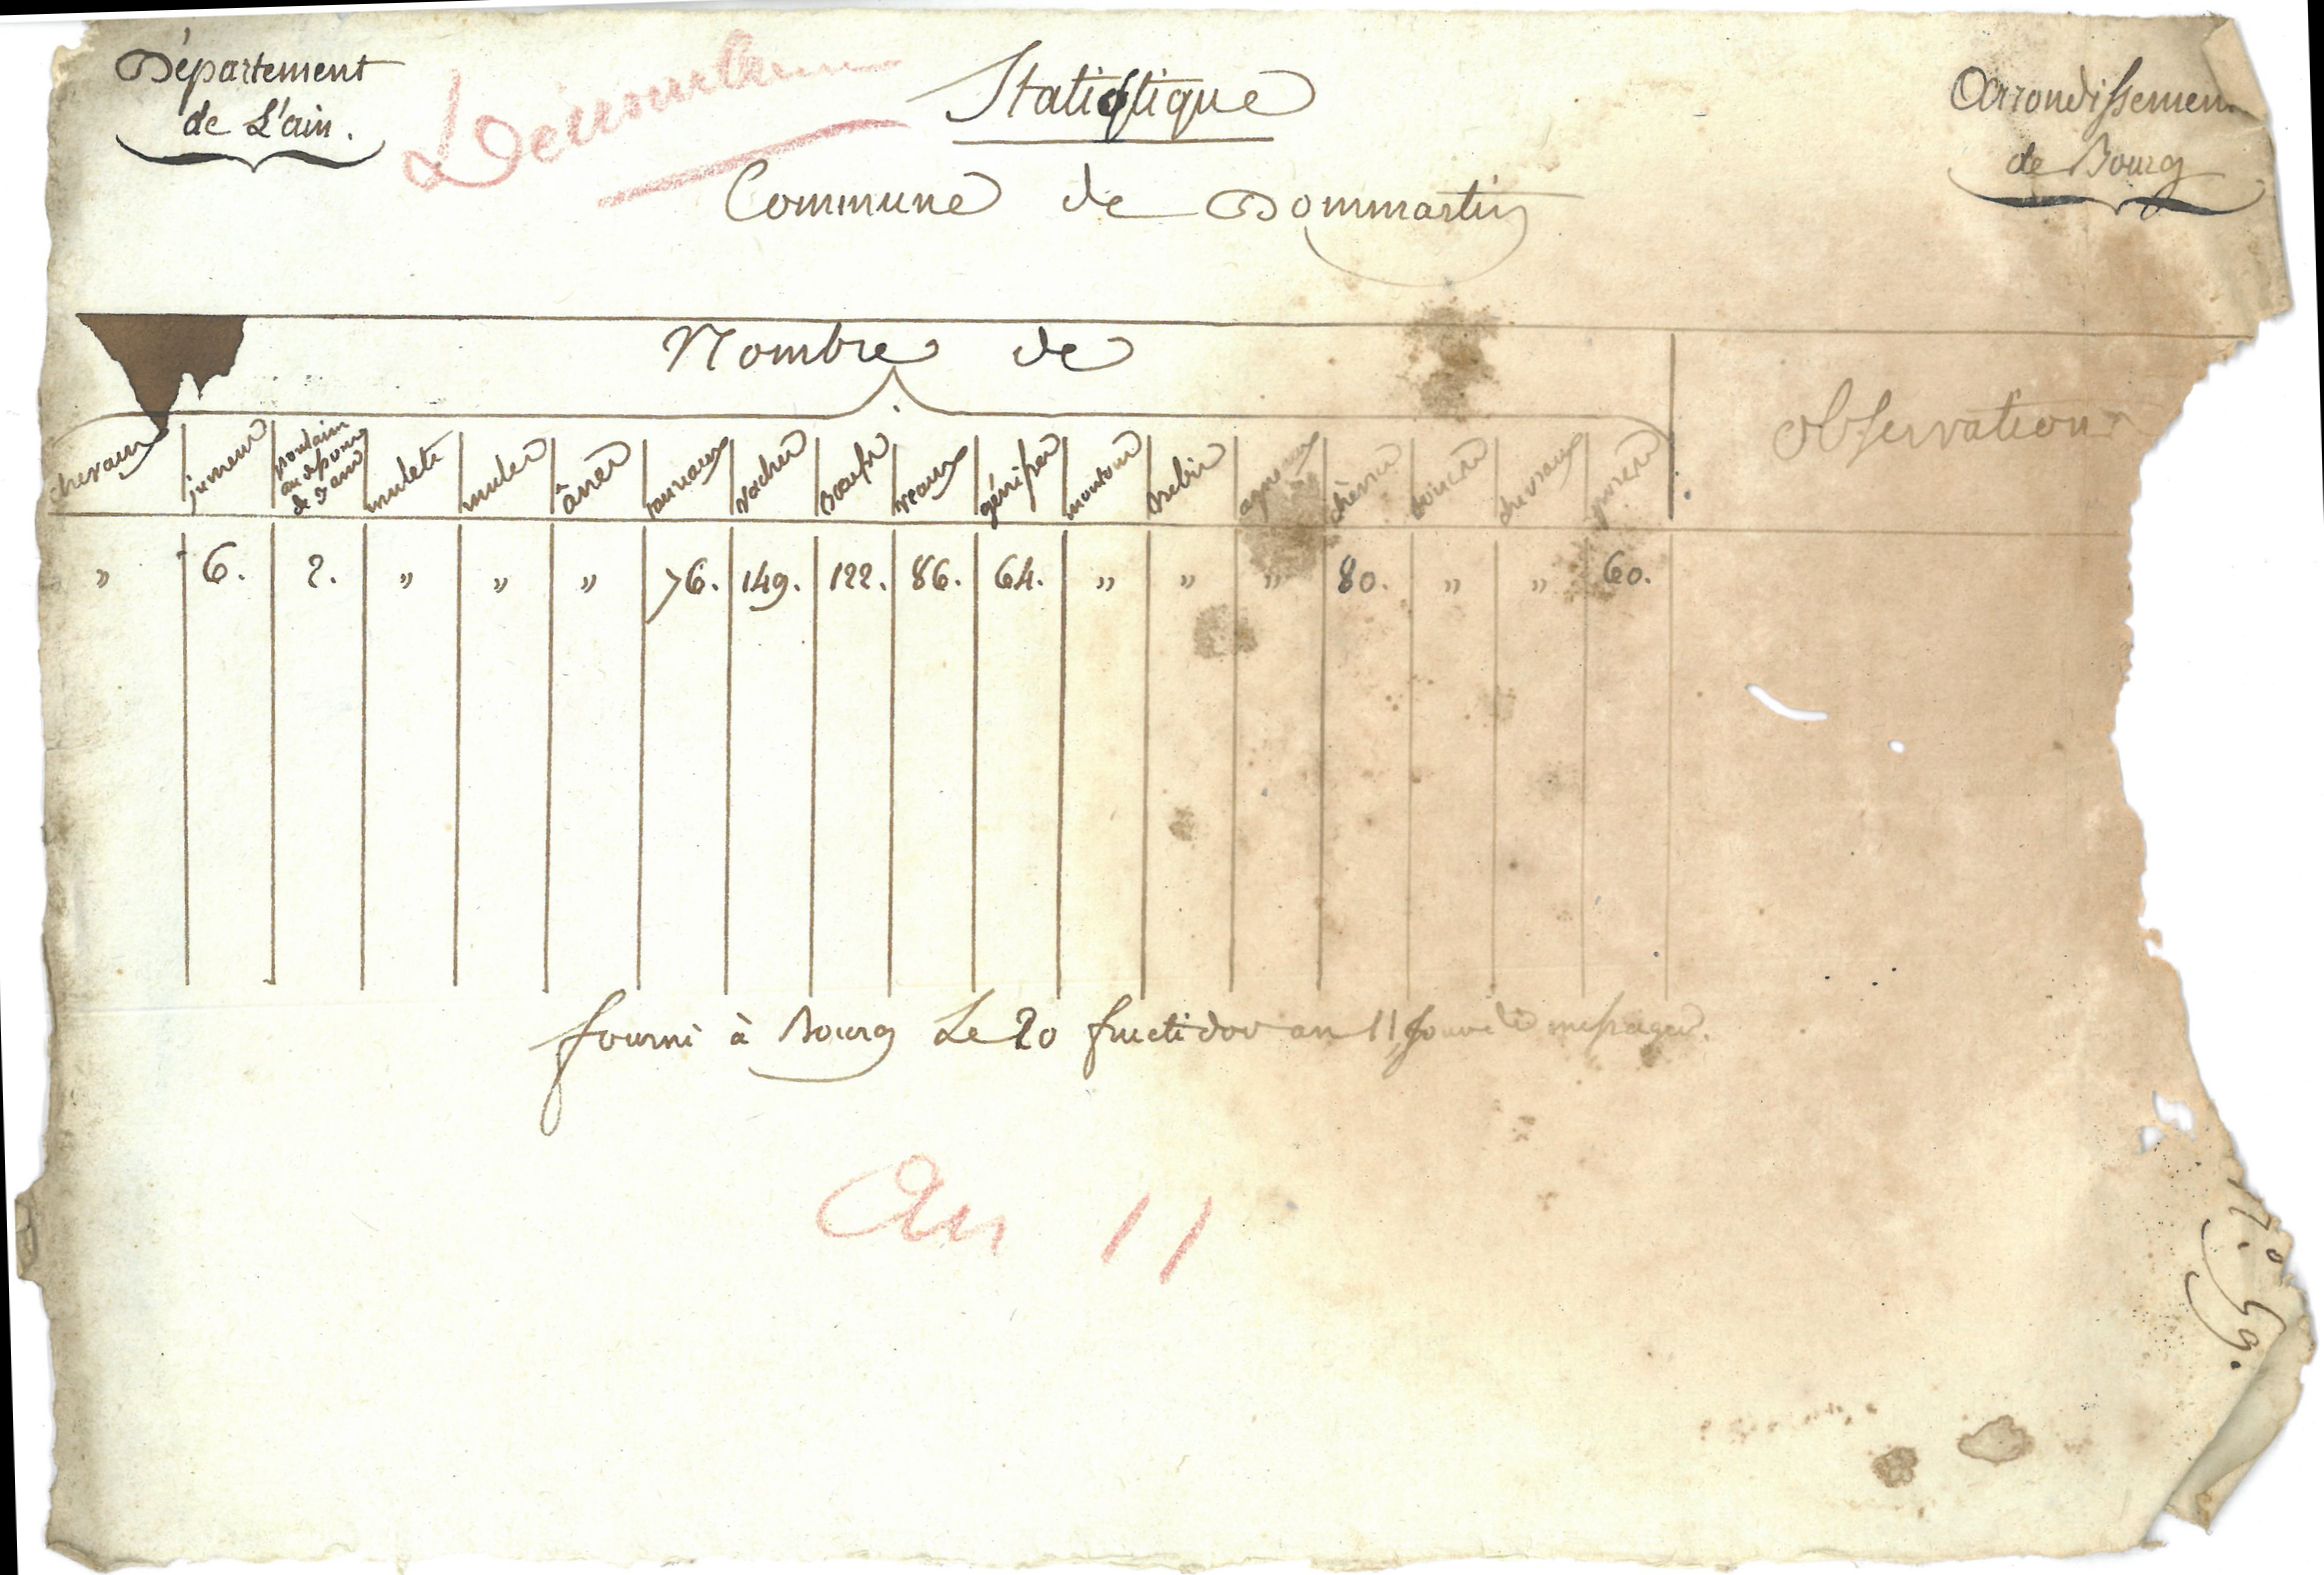 Département
de L'ain.
Dénombre
Statistique
Arrondissement
de Bourg
Commune de Dommartin
Nombre de
Observations
chevaux jumens poulains au dessous de 3 ans mulets mules ânes taureaux vaches Bœufs veaux génisses moutons brebis agneaux chèvres boucs chevraux porcs
" 6. 2. " " " 76. 149. 122. 86. 64. " " " 80. " " 60.
fourni à Bourg Le 20 fructidor an 11 messager.
an 11
N.° 59.